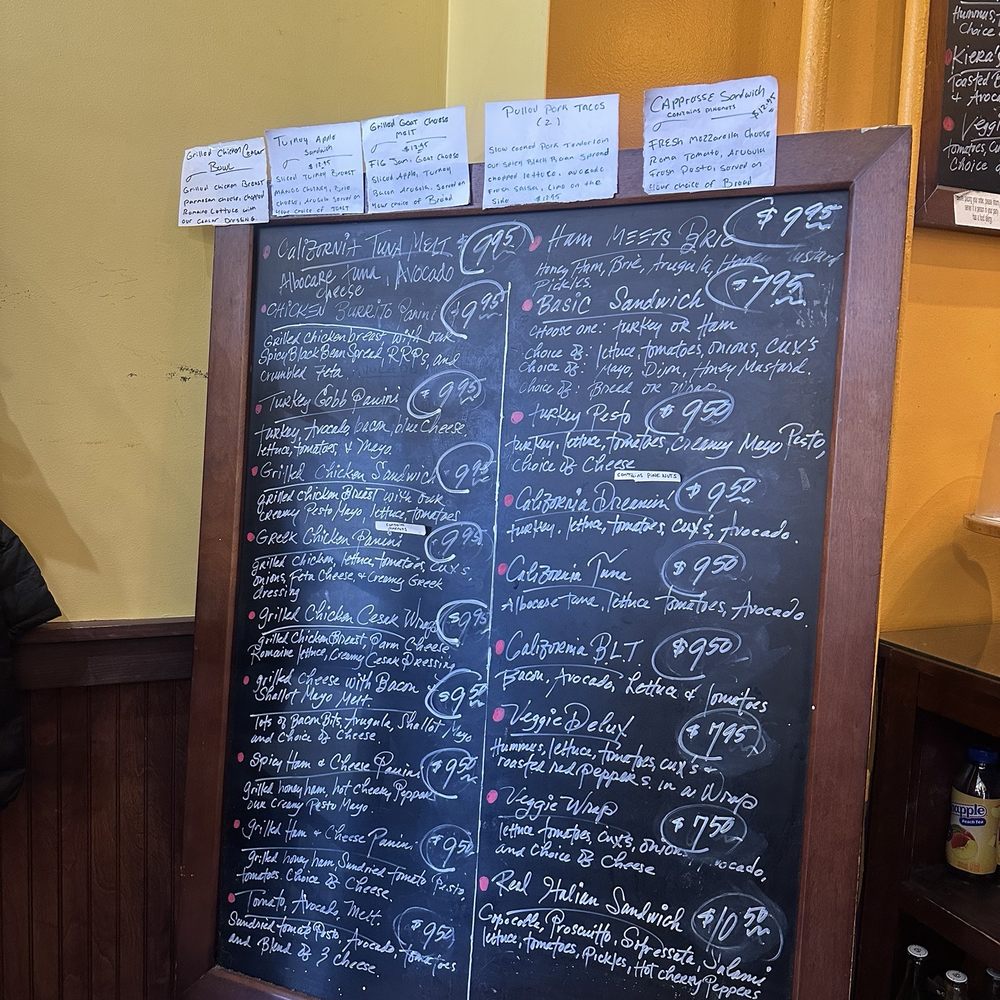 Grilled Chicken Cesar
Bowl
Grilled chicken Breast
Parmasan cheese, chopped
Romaine Lettuce with
our Cesar Dressing.
Turkey Apple
Sandwich
$12.95
Sliced Turkey Breast
Mango Chutney, Brie
cheese, Arugula, served on
your choice of Toast
Grilled Goat Cheese
MELT
$12.95
Fig Jam, Goat Cheese
Sliced Apple, Turkey
Bacon Arugula, Served on
Your choice of Bread
Pulled Pork Tacos
(2)
Slow cooked Pork Tenderloin
our Spicy Black Bean Spread
chopped lettuce, avocado
Fresh salsa, Lime on the
Side $12.95
CAPPROSSE Sandwich
CONTAINS PINENUTS
$12.95
FRESH Mozzarella Cheese
Roma Tomato, Arugula
Fresh Pesto, served on
Your choice of Bread
California Tuna Melt $9.95
Albocare Tuna, Avocado
cheese
Chicken Burrito Panini $9.95
Grilled chicken breast with our
Spicy Black Bean Spread, R.R.P's, and
crumbled Feta
Turkey Cobb Panini $9.95
turkey, Avocado, bacon, blue Cheese,
lettuce, tomatoes, & Mayo
Grilled Chicken Sandwich $9.95
grilled chicken Breast with our
Creamy Pesto Mayo, lettuce, tomatoes
Greek Chicken Panini $9.95
Grilled Chicken, lettuce, tomatoes, cux's,
onions, Feta Cheese, & Creamy Greek
dressing
grilled Chicken Cesar Wrap $9.95
grilled Chicken Breast, Parm Cheese
Romaine lettuce, Creamy Cesar Dressing
grilled Cheese with Bacon $9.50
Shallot Mayo Melt.
Lots of Bacon Bits, Arugula, Shallot Mayo
and Choice of Cheese
Spicy Ham & Cheese Panini $9.50
grilled honey ham, hot cherry Peppers
our Creamy Pesto Mayo
Grilled Ham & Cheese Panini $9.50
grilled honey ham, Sundried tomato Pesto
tomatoes, Choice of Cheese.
Tomato, Avocado, Melt $9.50
Sundried tomato Pesto, Avocado, tomatoes
and Blend of 3 cheese.
Ham MEETS BRIE $9.95
Honey Ham, Brie, Arugula, Honey Mustard
Pickles.
BASIC Sandwich $7.95
Choose one: turkey or Ham
choice of: lettuce, tomatoes, onions, cux's
choice of: Mayo, Dijon, Honey Mustard.
choice of: Bread or Wrap
turkey Pesto $9.50
turkey, lettuce, tomatoes, Creamy Mayo Pesto,
choice of Cheese
CONTAINS PINE NUTS
California Dreamin' $9.50
turkey, lettuce, tomatoes, cux's, Avocado.
California Tuna $9.50
Albocare tuna, lettuce tomatoes, Avocado.
California B.L.T $9.50
Bacon, Avocado, Lettuce & Tomatoes
Veggie Delux $7.95
Hummus, lettuce, tomatoes, cux's &
roasted red peppers in a Wrap
Veggie Wrap $7.50
lettuce tomatoes, cux's, onions, Avocado,
and choice of Cheese
Real Italian Sandwich $10.50
Copocolle, Proscuitto, Sopressata, Salami
lettuce, tomatoes, Pickles, Hot cherry Peppers
Hummus,
Choice
Kiera's
Toasted
& Avoca
Veggi
tomatoes, Cu
Choice o
apple
Peach Tea